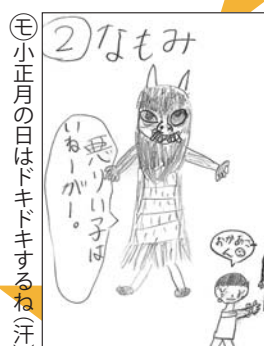 ㋲小正月の日はドキドキするね(汗
②なもみ
悪りい子は
いねーがー。